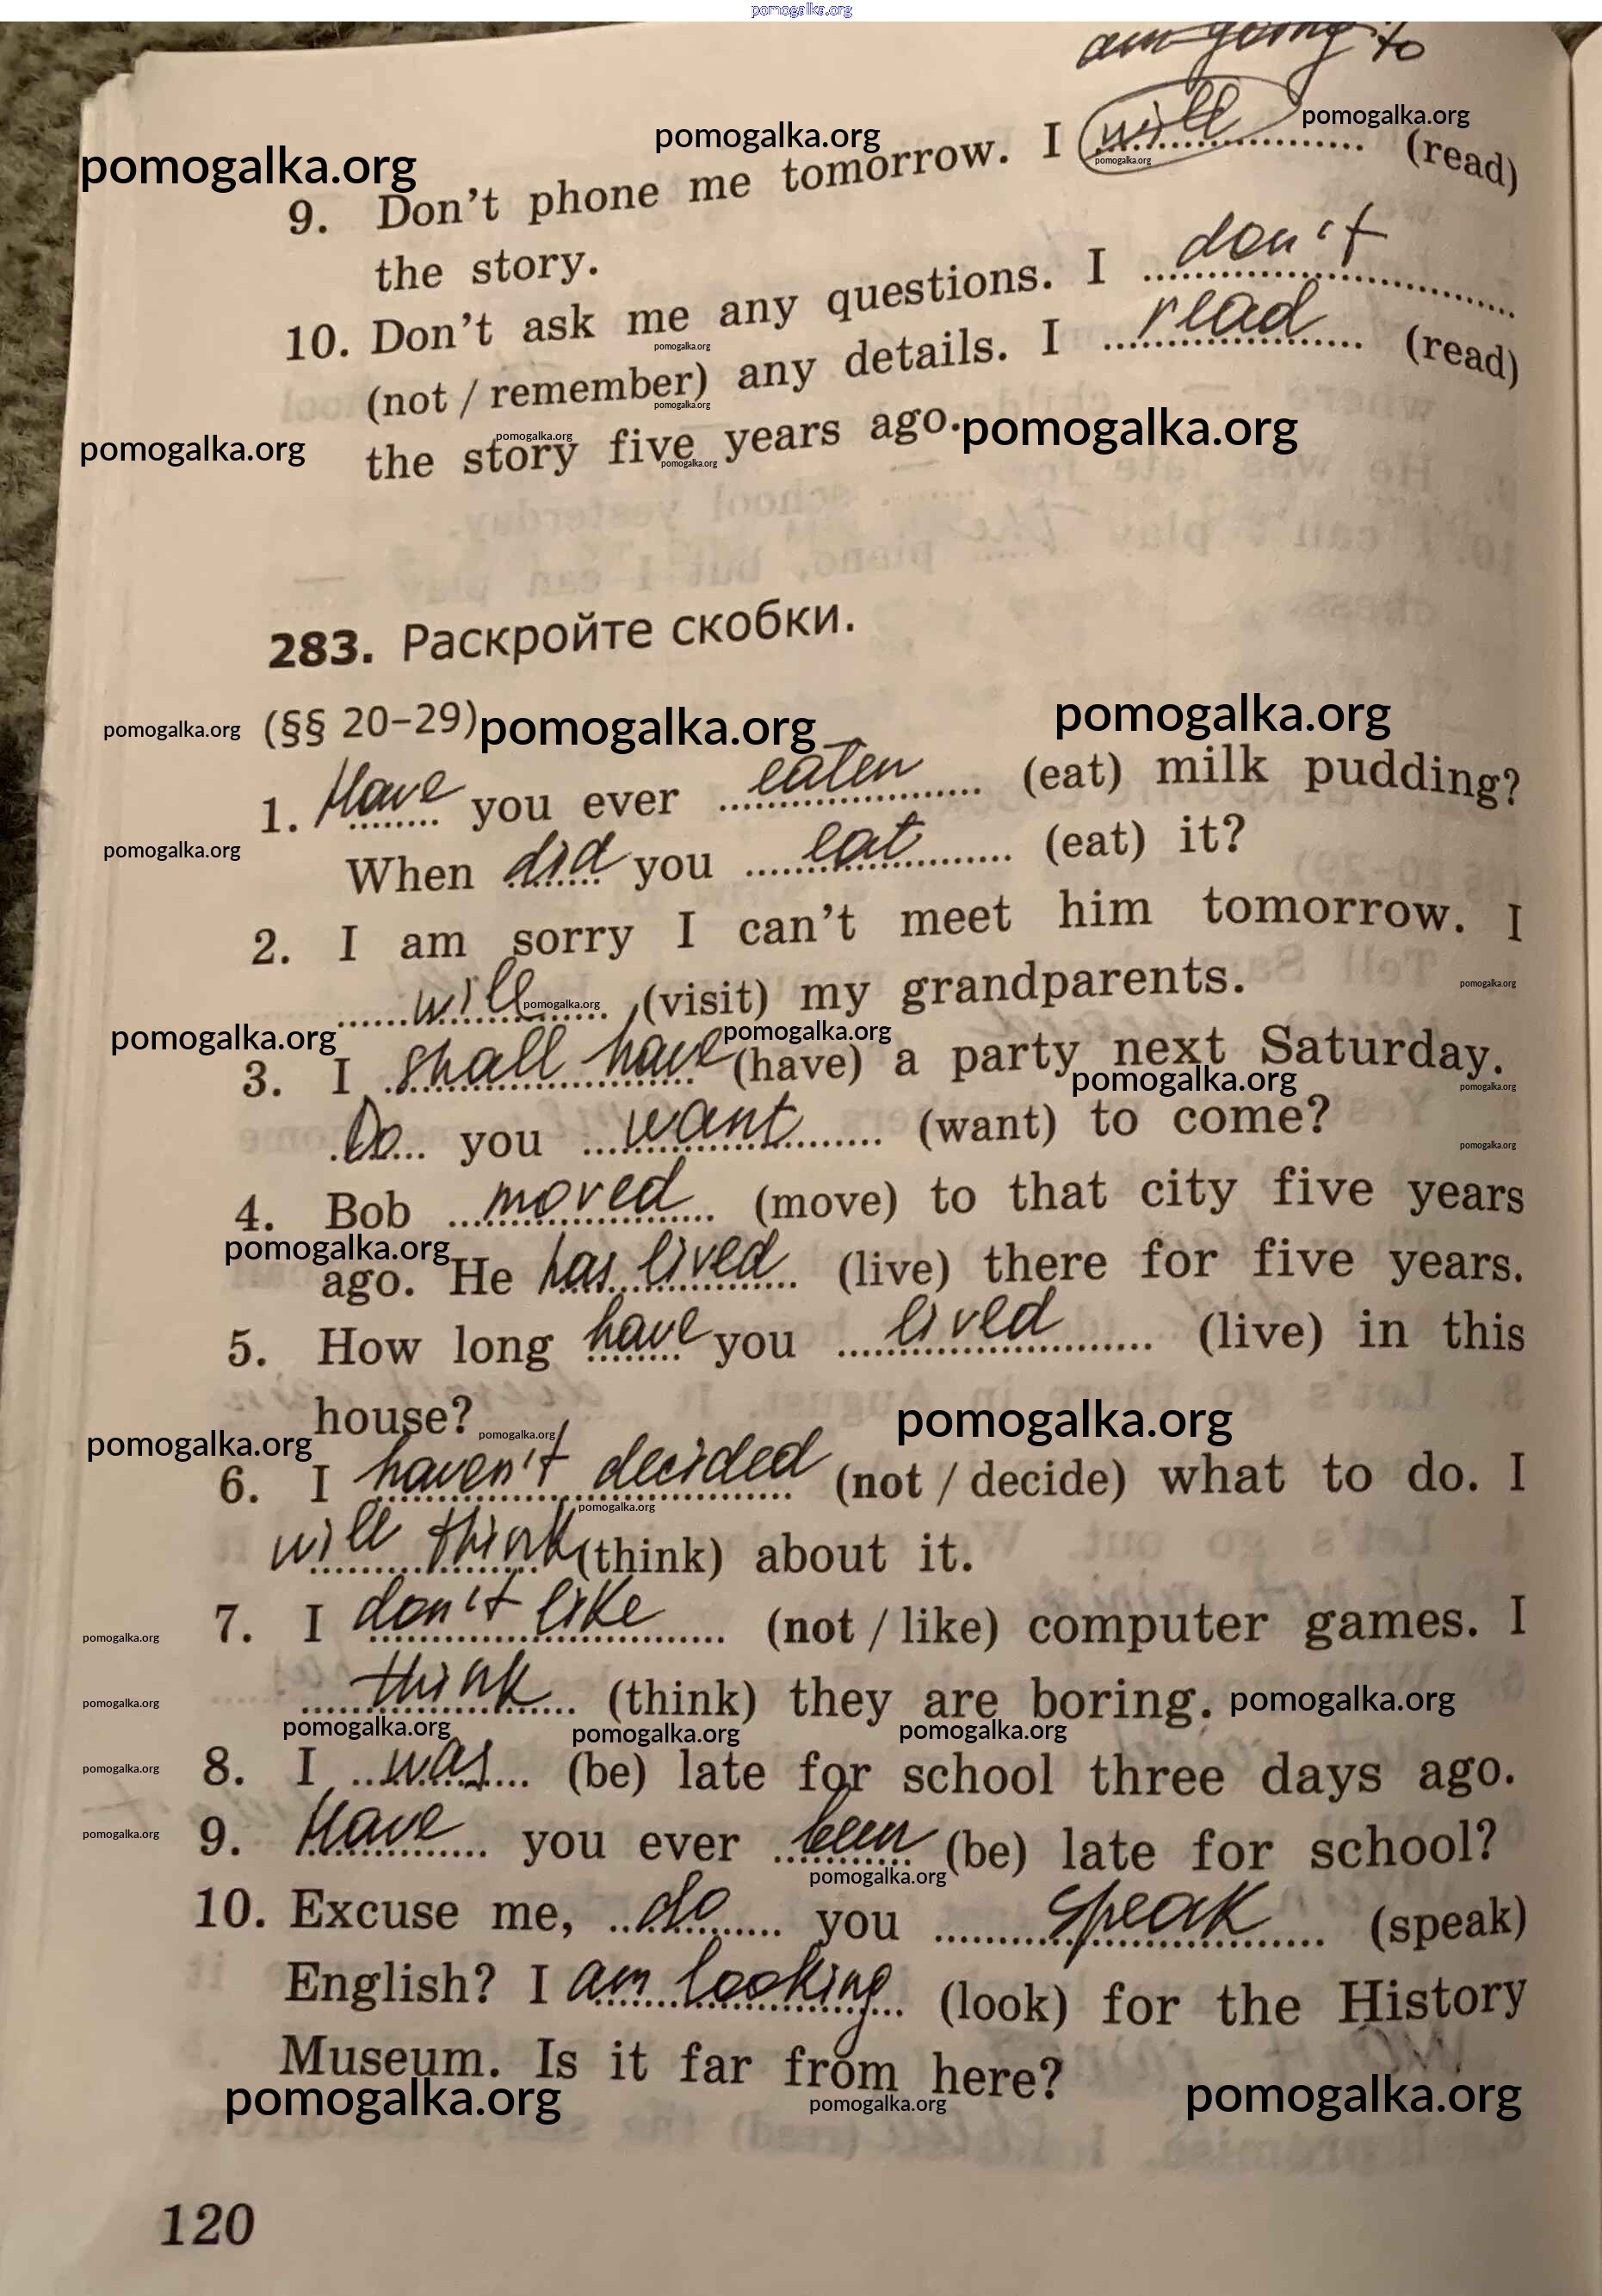 pomogalka.org
am going to
pomogalka.org pomogalka.org pomogalka.org
9. Don't phone me tomorrow. I will (read)
pomogalka.org
the story.
10. Don't ask me any questions. I don't
pomogalka.org
(not / remember) any details. I read (read)
pomogalka.org
the story five years ago.
pomogalka.org pomogalka.org pomogalka.org pomogalka.org
283. Раскройте скобки.
pomogalka.org (§§ 20–29) pomogalka.org pomogalka.org
1. Have you ever eaten (eat) milk pudding?
pomogalka.org
When did you eat (eat) it?
2. I am sorry I can't meet him tomorrow. I
will (visit) my grandparents.
pomogalka.org pomogalka.org
pomogalka.org pomogalka.org
3. I shall have (have) a party next Saturday.
pomogalka.org pomogalka.org
Do you want (want) to come?
pomogalka.org
4. Bob moved (move) to that city five years
pomogalka.org
ago. He has lived (live) there for five years.
5. How long have you lived (live) in this
house?
pomogalka.org pomogalka.org pomogalka.org
6. I haven't decided (not / decide) what to do. I
pomogalka.org
will think (think) about it.
7. I don't like (not / like) computer games. I
pomogalka.org
think (think) they are boring. pomogalka.org
pomogalka.org
pomogalka.org pomogalka.org pomogalka.org
8. I was (be) late for school three days ago.
pomogalka.org
9. Have you ever been (be) late for school?
pomogalka.org
pomogalka.org
10. Excuse me, do you speak (speak)
English? I am looking (look) for the History
Museum. Is it far from here?
pomogalka.org pomogalka.org pomogalka.org
120